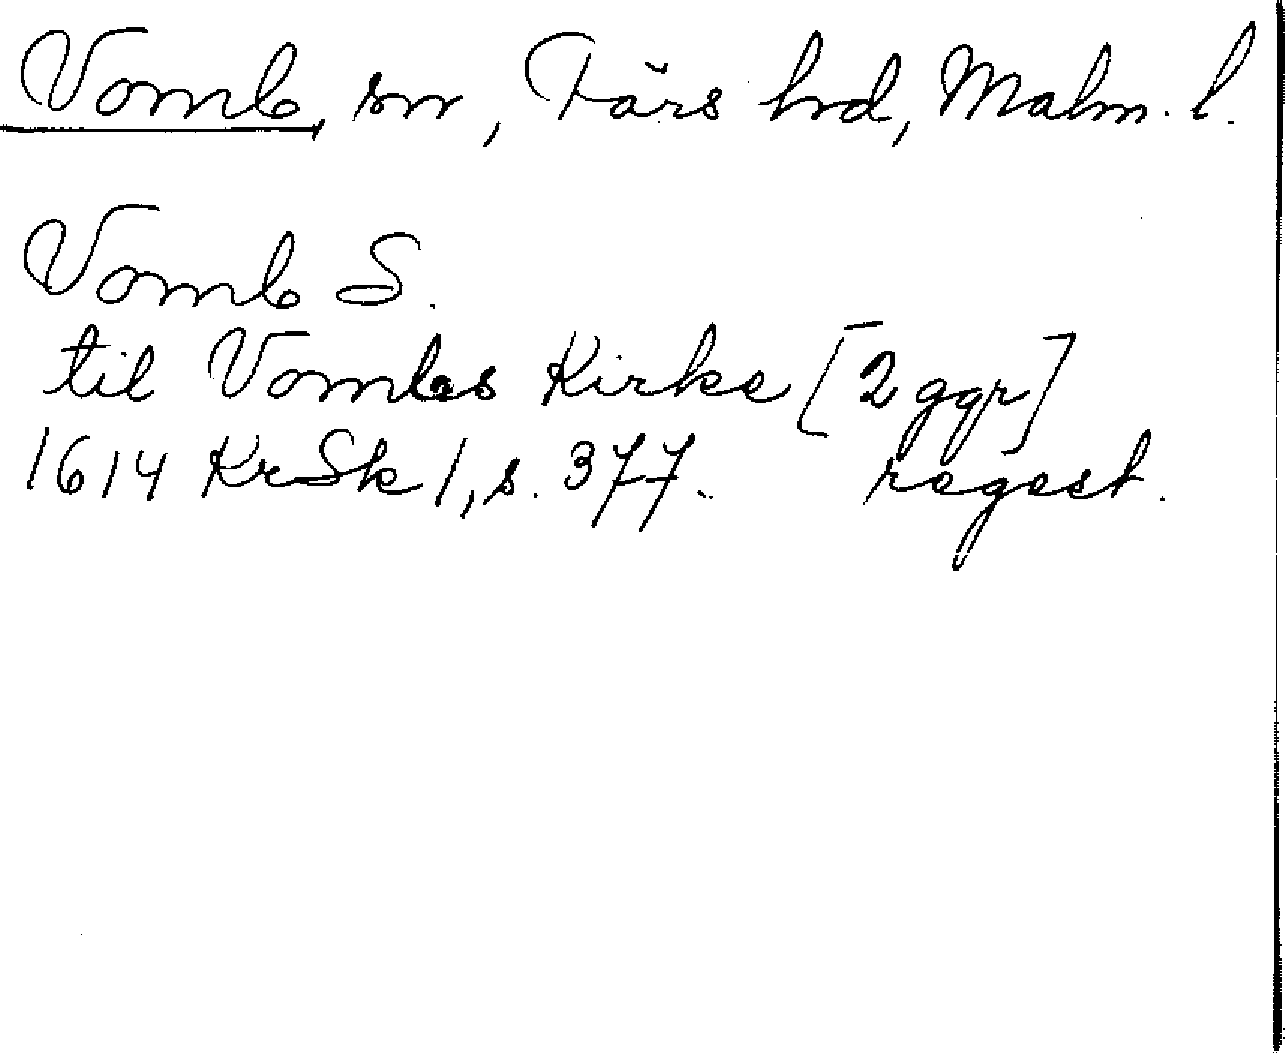 Vomb, sn, Färs hrd, Malm. l.
Vomb S.
til Vombs Kirke [2 ggr]
1614 KrSk 1, s. 377. regest.